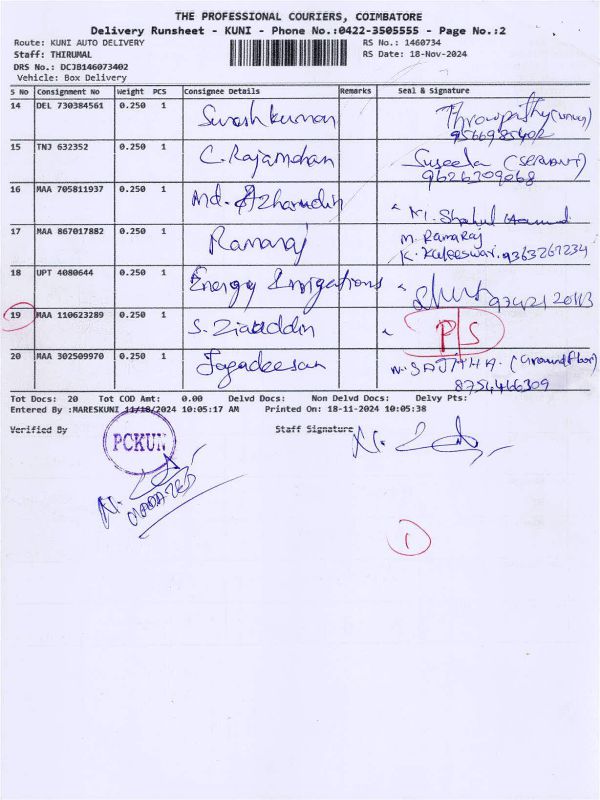 THE PROFESSIONAL COURIERS, COIMBATORE
Delivery Runsheet - KUNI - Phone No.:0422-3505555 - Page No.:2
Route: KUNI AUTO DELIVERY RS No.: 1460734
Staff: THIRUMAL RS Date: 18-Nov-2024
DRS No.: DCJB146073402
Vehicle: Box Delivery
S No Consignment No Weight PCS Consignee Details Remarks Seal & Signature
14 DEL 730384561 0.250 1 Sureshkumar
15 TNJ 632352 0.250 1 C. Rajamohan Suseela (SERVANT)
9626309068
16 MAA 705811937 0.250 1 Md. Azharudin
17 MAA 867017882 0.250 1 Ramaraj M. Ramaraj
K. Kaleeswari. 9363267234
18 UPT 4080644 0.250 1 Energy Irrigations
19 MAA 110623289 0.250 1 S. Ziauddin P/S
20 MAA 302509970 0.250 1 Jagadeesan N. SAJITHA. (Groundfloor)
8754466309
Tot Docs: 20 Tot COD Amt: 0.00 Delvd Docs: Non Delvd Docs: Delvy Pts:
Entered By :MARESKUNI 11/18/2024 10:05:17 AM Printed On: 18-11-2024 10:05:38
Verified By Staff Signature
PCKUN
1